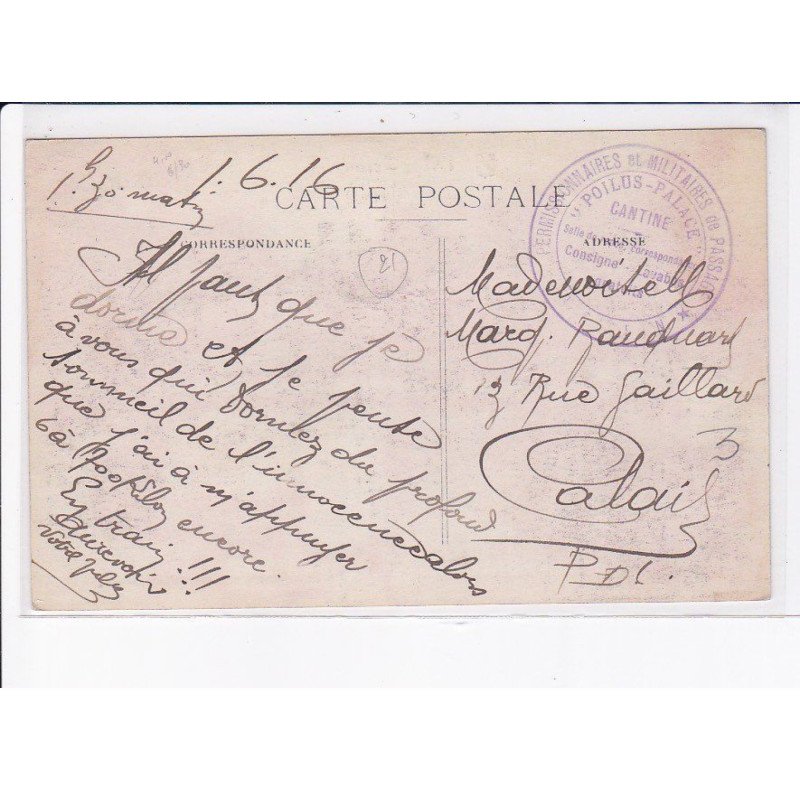 1.6.16
1h30 matin
CARTE POSTALE
CORRESPONDANCE
ADRESSE
21
PERMISSIONNAIRES et MILITAIRES de PASSAGE
"POILUS-PALACE"
CANTINE
Salle de correspondance
Consigne Lavabos
Il faut que je
dorme et je pense
à vous qui dormez du profond
sommeil de l'innocence alors
que j'ai à m'appuyer
encore.
En train !!!
Au revoir
Mademoisell
Marg.
13 Rue Gaillard
3
Calais
P D C.